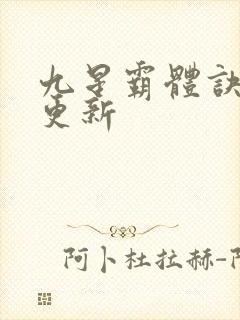 九星霸體訣
更新
阿卜杜拉赫-阿